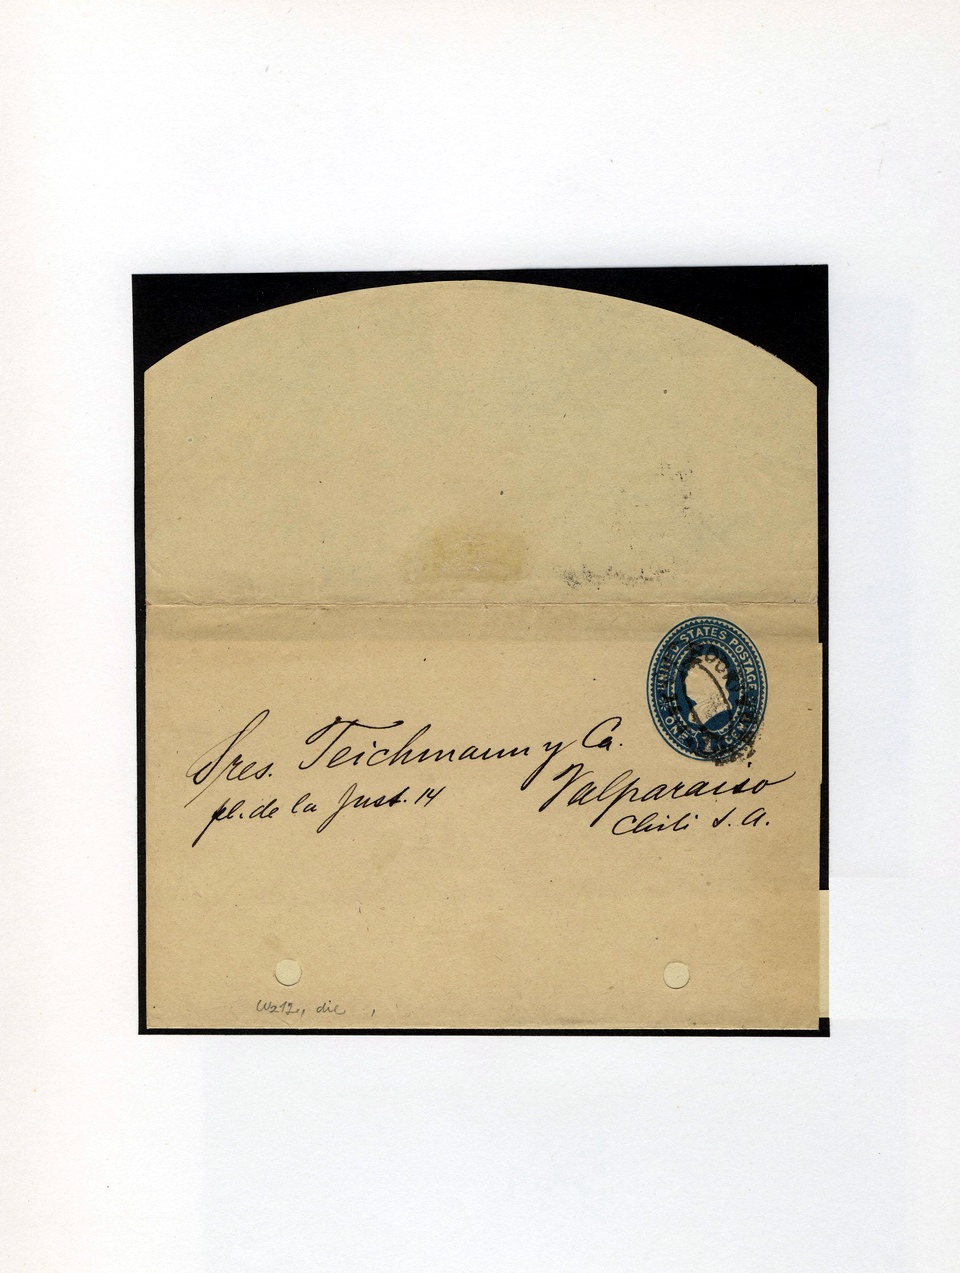 UNITED STATES POSTAGE
ONE CENT
Sres. Teichmann y Ca.
pl. de la Just. 14
Valparaiso
Chili S. A.
die